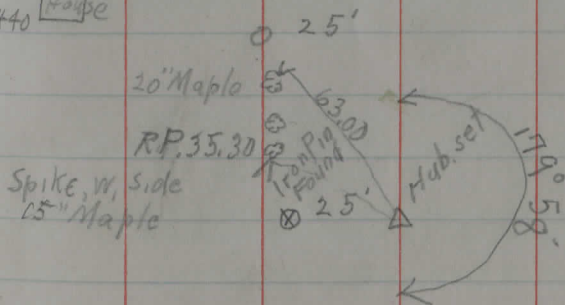 440 House
25'
20" Maple
63.00
R.P. 35.30
Iron Pin
Found
Hub. set
179° 58'
Spike, W. Side
15" Maple
25'